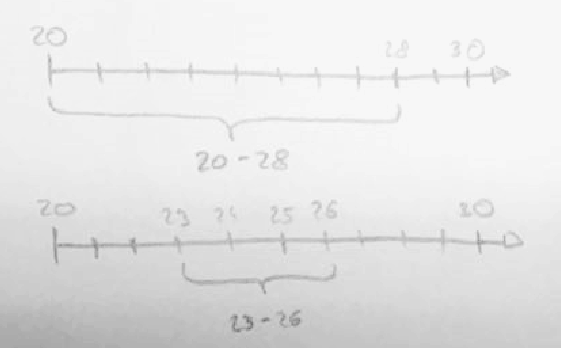 20 28 30
20-28
20 23 24 25 26 30
23-26